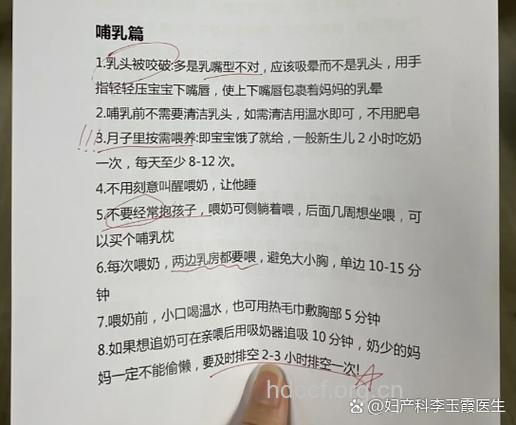 哺乳篇
1.乳头被咬破:多是乳嘴型不对，应该吸晕而不是乳头，用手
指轻轻压宝宝下嘴唇，使上下嘴唇包裹着妈妈的乳晕
2.哺乳前不需要清洁乳头，如需清洁用温水即可，不用肥皂
!!!3.月子里按需喂养:即宝宝饿了就给，一般新生儿 2 小时吃奶
一次，每天至少 8-12 次。
4.不用刻意叫醒喂奶，让他睡
5.不要经常抱孩子，喂奶可侧躺着喂，后面几周想坐喂，可
以买个哺乳枕
6.每次喂奶，两边乳房都要喂，避免大小胸，单边 10-15 分
钟
7.喂奶前，小口喝温水，也可用热毛巾敷胸部 5 分钟
8.如果想追奶可在亲喂后用吸奶器追吸 10 分钟，奶少的妈
妈一定不能偷懒，要及时排空 2-3 小时排空一次!
知乎 @妇产科李玉霞医生